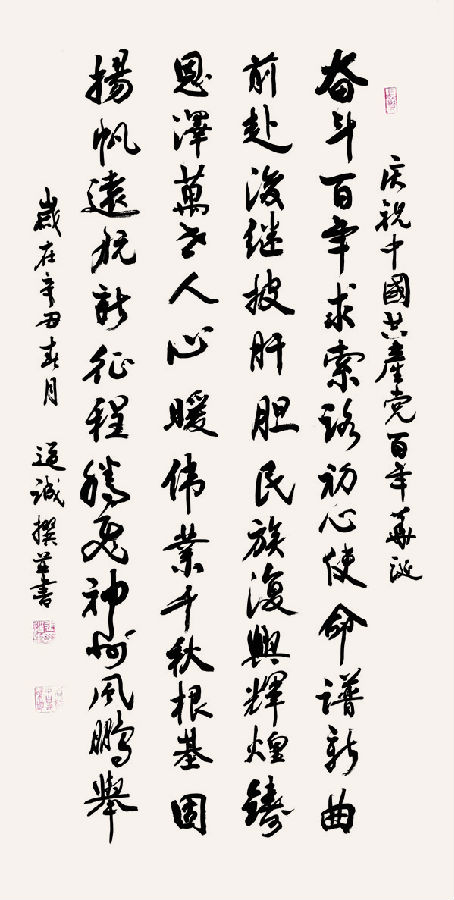 庆祝中國共產党百年華诞
奋斗百年求索路初心使命譜新曲
前赴後继披肝胆民族復興輝煌鑄
恩澤萬世人心暖伟業千秋根基固
揚帆遠航新征程腾飛神州風鹏舉
歲在辛丑春月 道诚撰并書